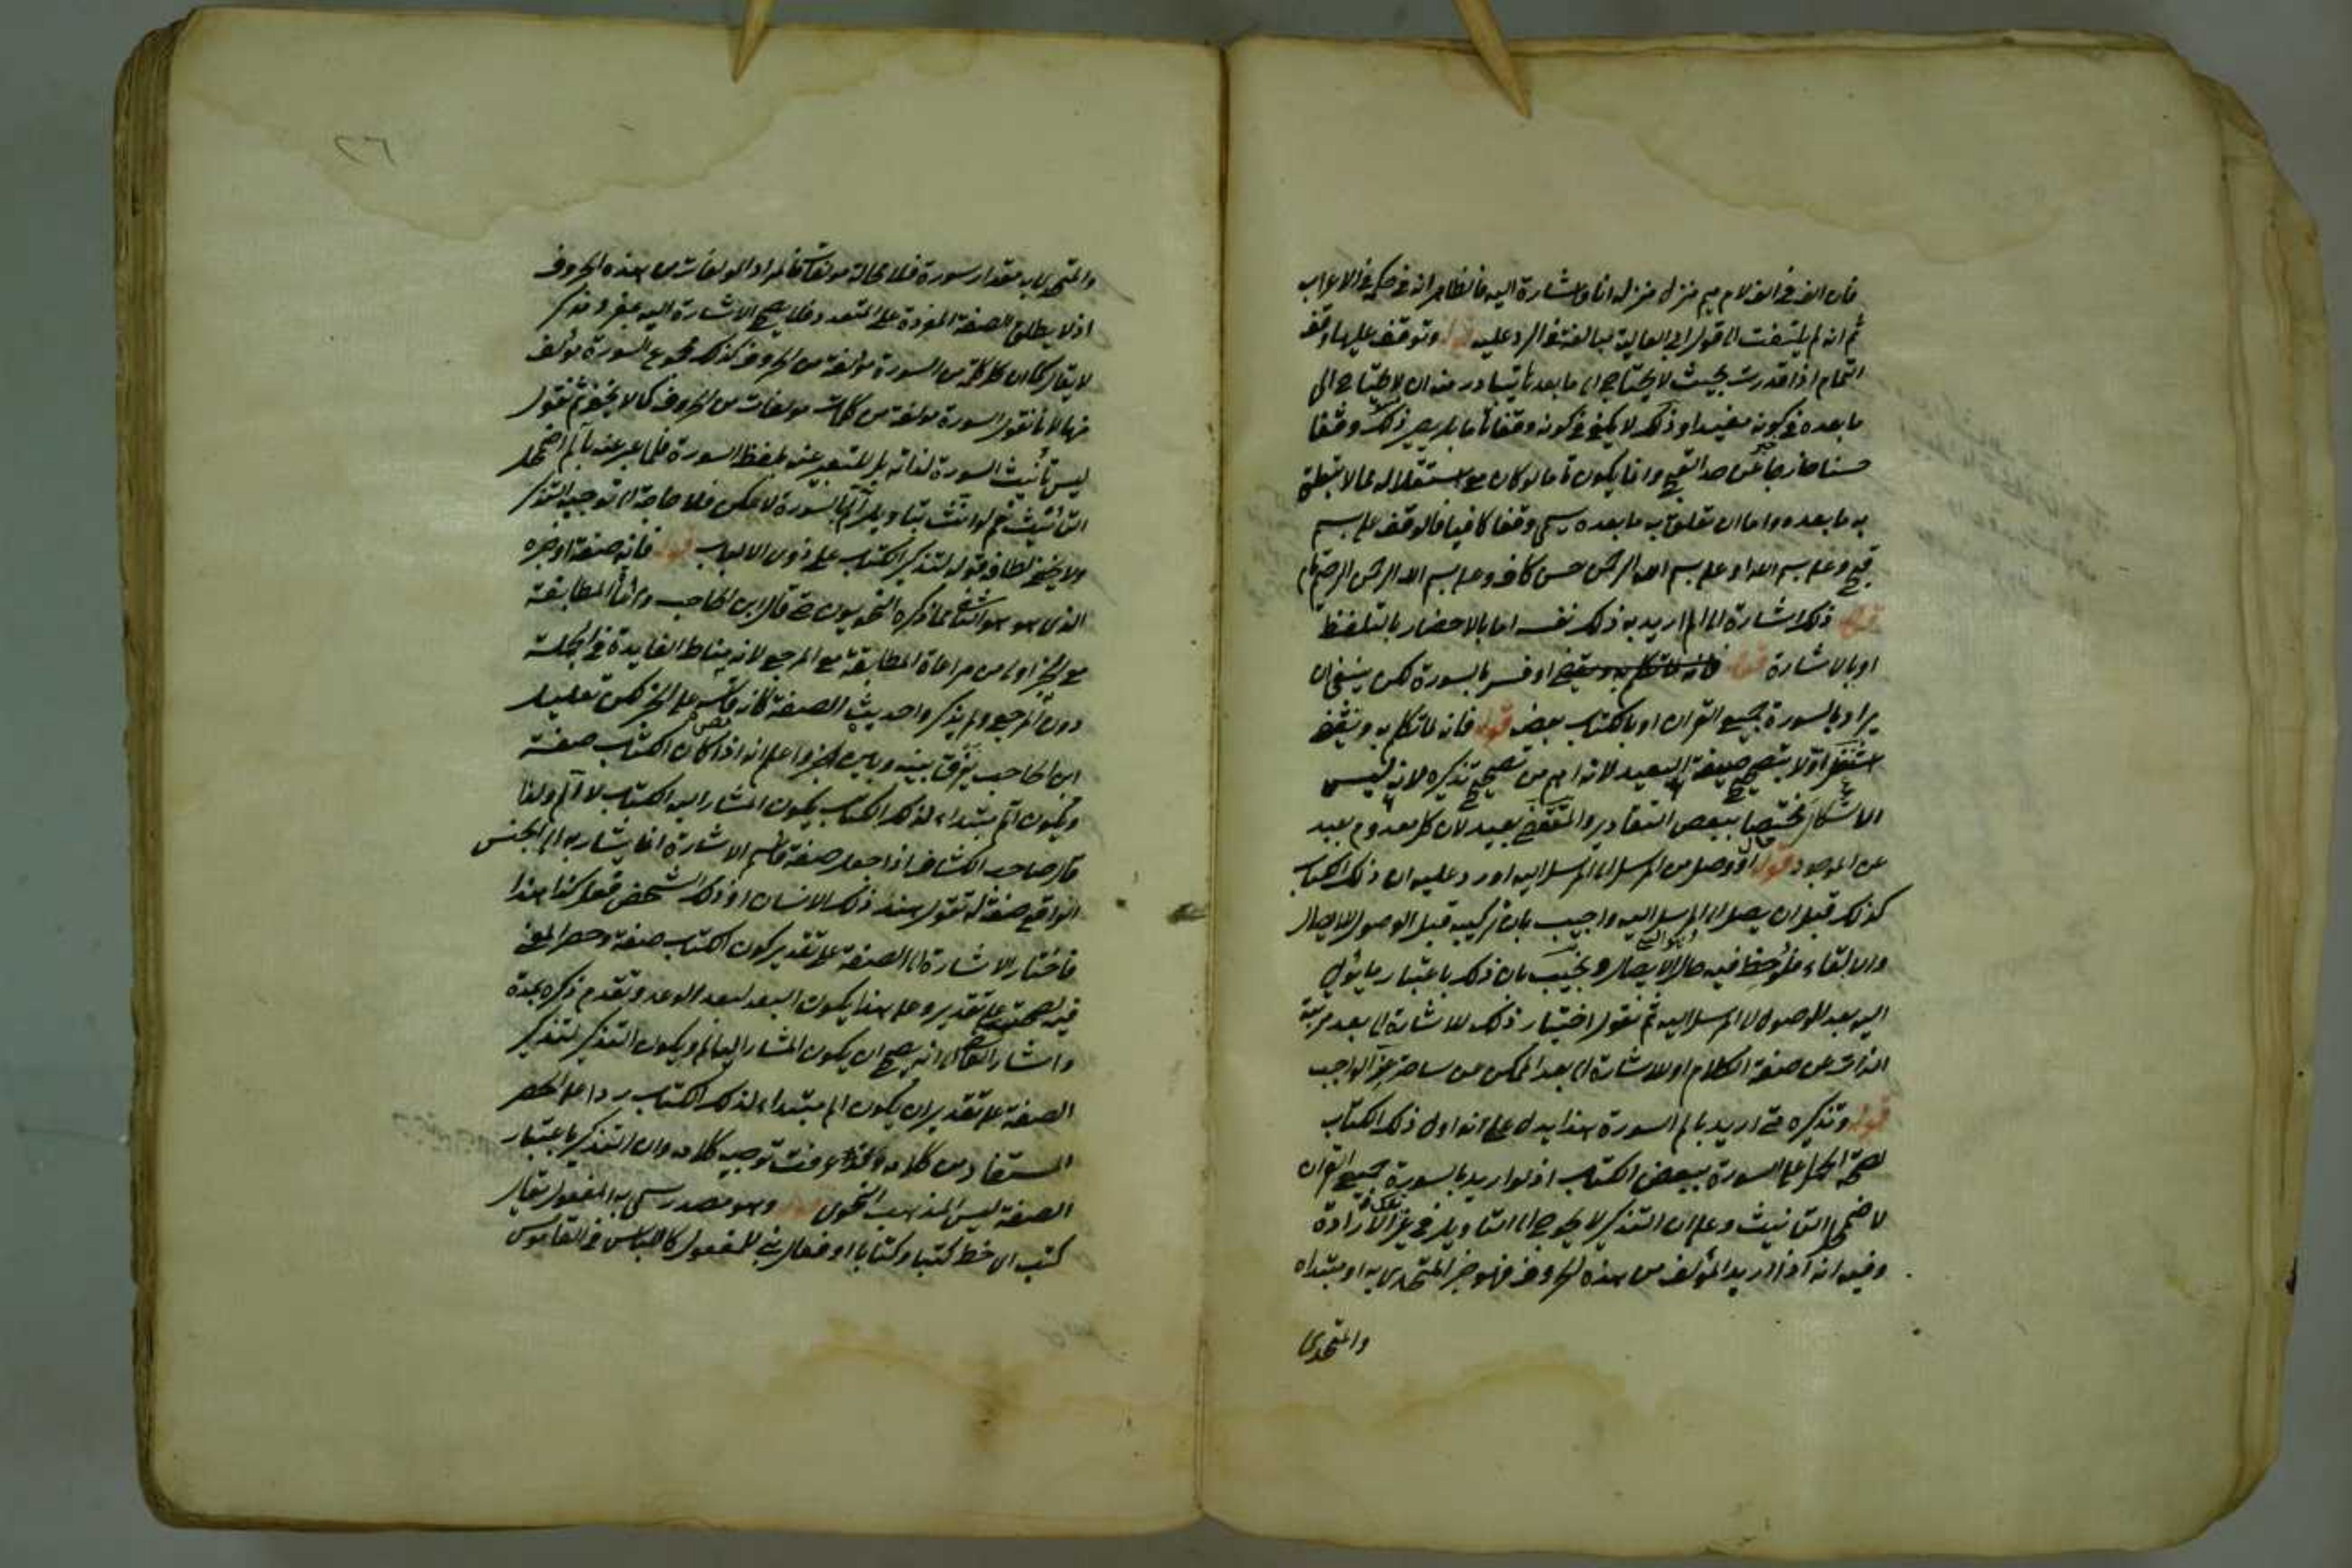 فان الف فى الف لام ميم منزل منزلة انا واشارة اليه فالظاهر انه فى حكمه فى الاعراب
ثم انه لم يلتفت الى قول ابى العالية مبالغة فى الرد عليه قوله وتوقف عليها وقف
التمام اذا قدرت بحيث لا يحتاج الى ما بعدها يتبادر منه ان لا يحتاج الى
ما بعده فى كونه مفيدا وذلك لا يكفى فى كونه وقفا تاما بل يصير ذلك وقفا
حسنا خارجا عن حد القبح وانما يكون تاما لو كان مع استقلاله مما لا يتعلق
به ما بعده واما ان تعلق به ما بعده يسمى وقفا كافيا فالوقف على بسم
قبيح وعلى بسم الله او على بسم الله الرحمن حسن كاف وعلى بسم الله الرحمن الرحيم تام
قوله ذلك اشارة الى الم اريد به ذلك نفسه اما بالاحضار بالتلفظ
او بالاشارة قوله فانه لما تكلم به ويقضى او فسر بالسورة لكن ينبغى ان
يراد بالسورة جميع القران او بالكتاب بعضه قوله فانه لما تكلم به وينقضى
اولا بتصحيح صيغة البعيد لانه اهم من تصحيح تذكيره لانه ليس
الاشكال مختصا ببعض التقادير والمنقضى بعيد لان كل معدوم بعيد
عن الموجود قوله او وصل من المرسل الى المرسل اليه اورد عليه ان ذلك الكتاب
كذلك قبل ان يصل الى المرسل اليه واجيب بان تركيبه قبل الوصول للايصال
والالقاء فلوحظ فيه حال الايصال ونجيب بان ذلك باعتبار ما يؤل
اليه بعد الوصول الى المرسل اليه ثم نقول اختيار ذلك للاشارة الى بعد مرتبة
الذات عن صفة الكلام او للاشارة الى بعد الممكن من ساحة عز الواجب
قوله وتذكيره متى اريد بالم السورة هذا يدل على انه اول ذلك الكتاب
لصحة الحمل على السورة ببعض الكتاب اذ لو اريد بالسورة جميع القران
لاضمحل التانيث وعلى ان التذكير لا يحوج الى التاويل فى غير تلك الارادة
وفيه انه اذا اريد المؤلف من هذه الحروف فهو خبر المتحدى به او مبتداه
والمتحدى
٢٦
والمتحدى به مقدار سورة فلا محالة مؤلفات فالمراد المؤلفات من هذه الحروف
اذ لا يطلق الصفة المفردة على المتعدد فلا يصح الاشارة اليه بمفرد مذكر
لا يقال كما ان كل كلمة من السورة مؤلفة من الحروف كذلك مجموع السورة مؤلف
منها لانا نقول السورة مؤلفة من كلمات مؤلفات من الحروف كما لا يخفى ثم نقول
ليس تانيث السورة لذاته بل للتعبير عنه بلفظ السورة فلما عبر عنه بالم اضمحل
التانيث نعم لو انث بتاويل الم بالسورة لامكن فلا حاجة الى توجيه التذكير
ولا يخفى لطافة قوله لتذكير الكتاب على ذوى الالباب قوله فانه صفته او خبره
الذى هو هو انما ذكره النحويون حتى قال ابن الحاجب المطابقة
مع الخبر اولى من مراعاة المطابقة مع المرجع لانه مناط الفايدة فى الجملة
دون المرجع ولم يذكر واحد حديث الصفة كانه قاسه على الخبر لكن تعليل
ابن الحاجب يفرق بينه وبين الخبر واعلم انه اذا كان الكتاب صفة
ويكون الم مبتداء لذلك الكتاب يكون المشار اليه الكتاب لا الم ولذا
قال صاحب الكشاف اذا جعل صفة فاسم الاشارة انما يشار به الى الجنس
الواقع صفة له تقول هند ذلك الانسان او ذلك الشخص فعل كذا هذا
فاختار الاشارة الى الصفة على تقدير كون الكتاب صفة وحصر المعنى
فيه لصحته على تقدير وعلى هذا يكون البعد لبعد الوعد وتقدم ذكره بمدة
واشار القاضى الى انه يصح ان يكون المشار اليه الم ويكون التذكير لتذكير
الصفة على تقدير ان يكون الم مبتداء لذلك الكتاب ردا على الحصر
المستفاد من كلامه وعرفت توجيه كلامه وان التذكير باعتبار
الصفة ليس المذهب النحوى قوله وهو مصدر سمى به المفعول يقال
كتب اى خط كتبا وكتابا او فعال بنى للمفعول كاللباس فى القاموس